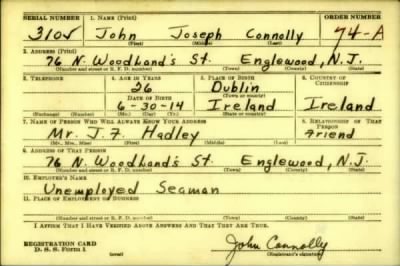 SERIAL NUMBER 1. NAME (Print) ORDER NUMBER
3105 John Joseph Connolly 74-A
(First) (Middle) (Last)
2. ADDRESS (Print)
76 N. Woodland's St. Englewood, N.J.
(Number and street or R. F. D. number) (Town) (County) (State)
3. TELEPHONE 4. AGE IN YEARS 5. PLACE OF BIRTH 6. COUNTRY OF CITIZENSHIP
26 Dublin
DATE OF BIRTH (Town or county)
6-30-14 Ireland Ireland
(Exchange) (Number) (Mo.) (Day) (Yr.) (State or country)
7. NAME OF PERSON WHO WILL ALWAYS KNOW YOUR ADDRESS 8. RELATIONSHIP OF THAT PERSON
Mr. J. F. Hadley friend
(Mr., Mrs., Miss) (First) (Middle) (Last)
9. ADDRESS OF THAT PERSON
76 N. Woodland's St. Englewood, N.J.
(Number and street or R. F. D. number) (Town) (County) (State)
10. EMPLOYER'S NAME
Unemployed Seaman
11. PLACE OF EMPLOYMENT OR BUSINESS
(Number and street or R. F. D. number) (Town) (County) (State)
I AFFIRM THAT I HAVE VERIFIED ABOVE ANSWERS AND THAT THEY ARE TRUE.
REGISTRATION CARD John Connolly
D. S. S. Form 1 (over) (Registrant's signature)